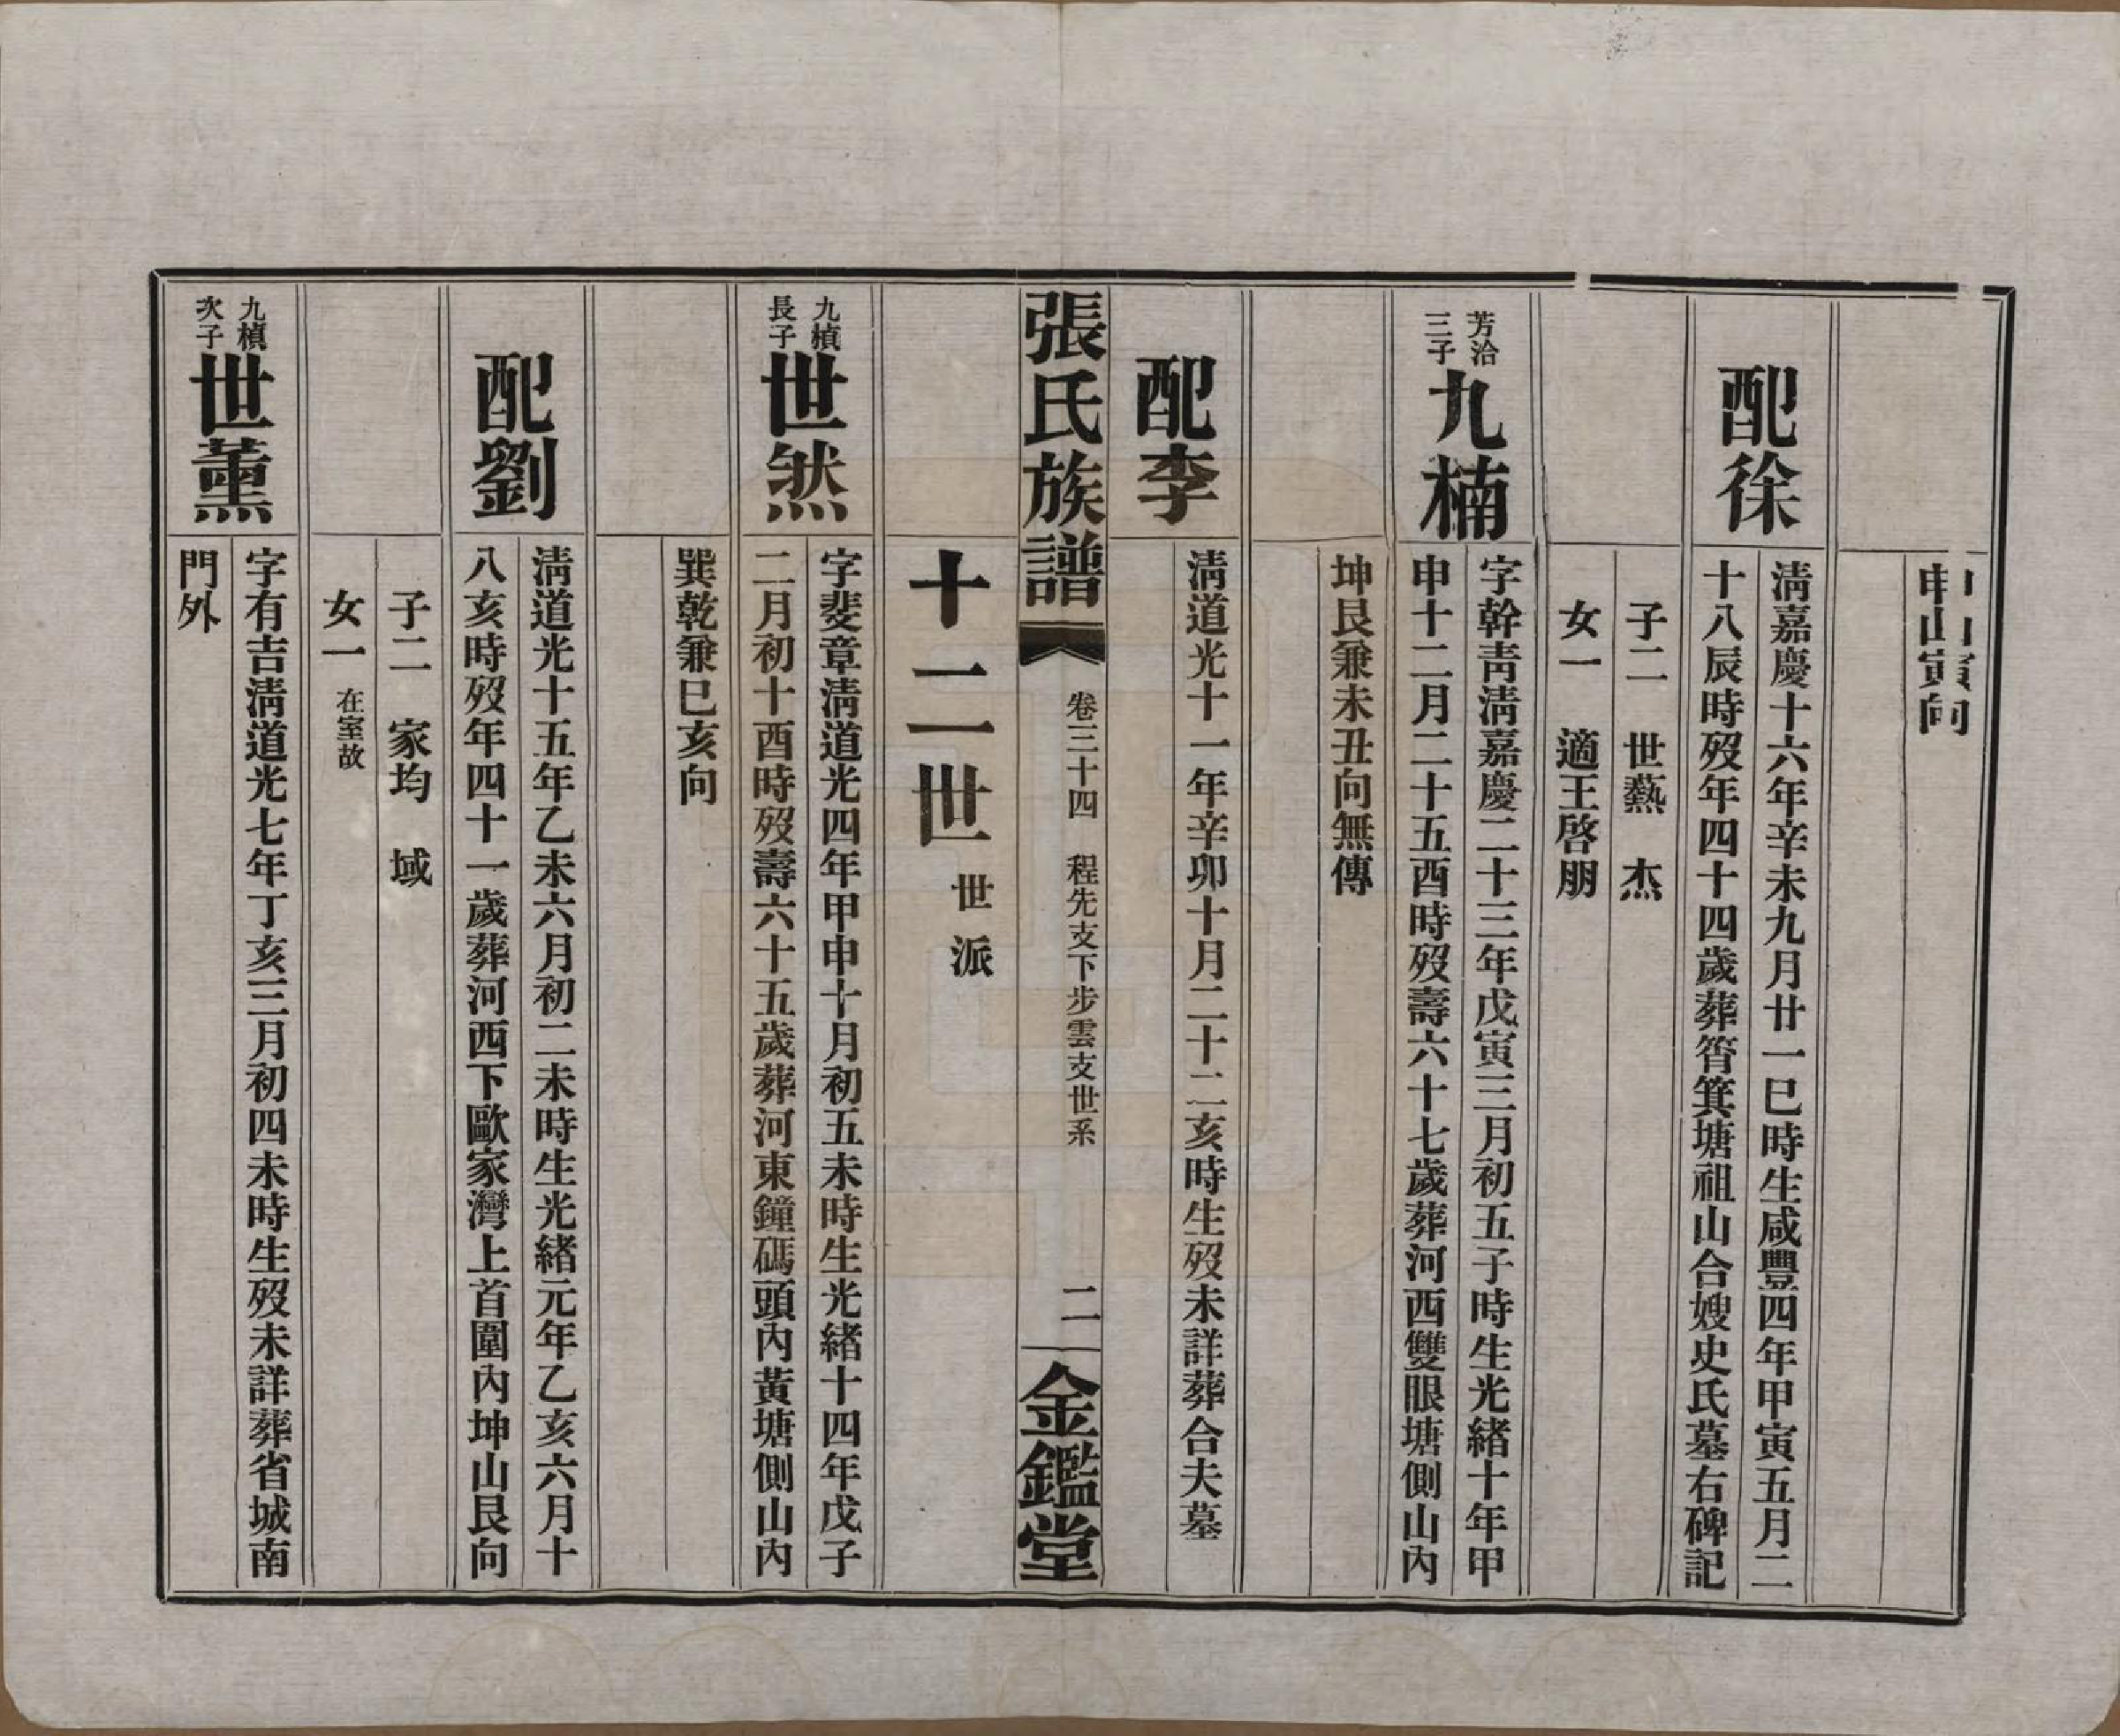 申山寅向
配徐
清嘉慶十六年辛未九月廿一巳時生咸豐四年甲寅五月二
十八辰時歿年四十四歲葬筲箕塘祖山合嫂史氏墓右碑記
子二 世藝 杰
女一 適王啓朋
芳洽
三子
九楠
字幹靑淸嘉慶二十三年戊寅三月初五子時生光緒十年甲
申十二月二十五酉時歿壽六十七歲葬河西雙眼塘側山內
坤艮兼未丑向無傳
配李
淸道光十一年辛卯十月二十二亥時生歿未詳葬合夫墓
張氏族譜
卷三十四 程先支下步雲支世系
二
金鑑堂
十二世 世派
九楨
長子
世然
字斐章淸道光四年甲申十月初五未時生光緒十四年戊子
二月初十酉時歿壽六十五歲葬河東鐘碼頭內黃塘側山內
巽乾兼巳亥向
配劉
淸道光十五年乙未六月初二未時生光緒元年乙亥六月十
八亥時歿年四十一歲葬河西下歐家灣上首圍內坤山艮向
子二 家均 域
女一 在室故
九楨
次子
世薰
字有吉淸道光七年丁亥三月初四未時生歿未詳葬省城南
門外